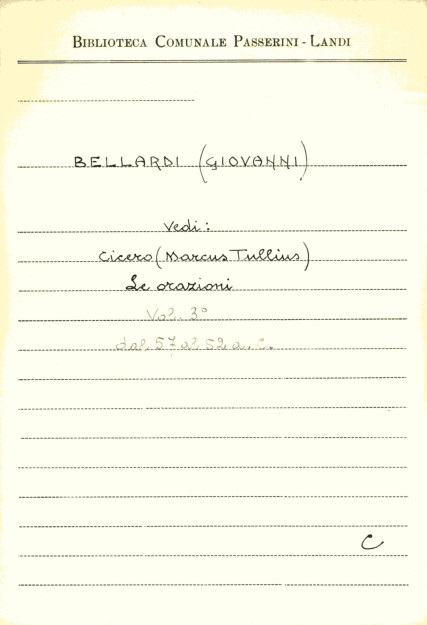 BIBLIOTECA COMUNALE PASSERINI - LANDI
BELLARDI (GIOVANNI)
Vedi:
Cicero (Marcus Tullius)
Le orazioni
Vol. 3°
dal 57 al 52 a. C.
C